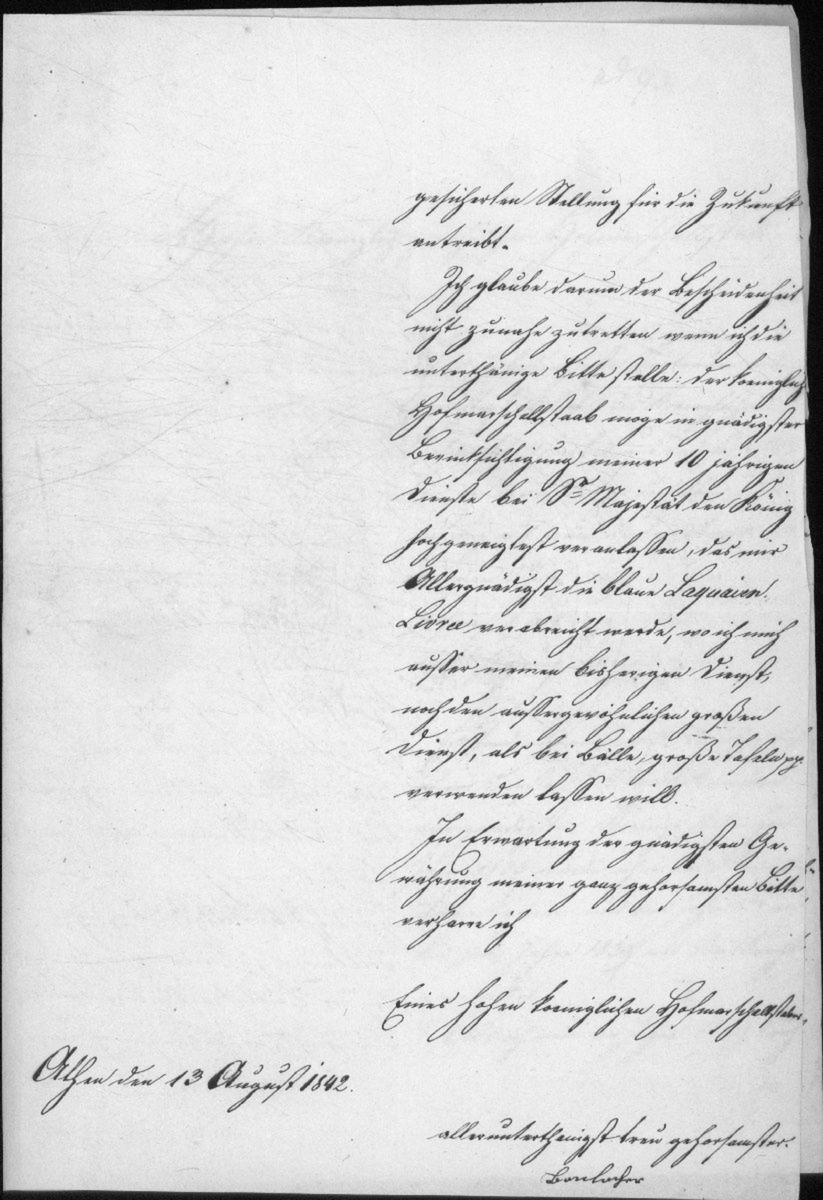 gesicherten Stellung für die Zukunft
antreibt.
Ich glaube darum der Bescheidenheit
nicht zunahe zutretten wenn ich die
unterthänige Bitte stelle: der koeniglich
Hofmarschallstaab moge in gnädigster
Berücksichtigung meiner 10 jährigen
Dienste bei Sr Majestät den König
hochgeneigtest veranlassen, das mir
Allergnädigst die blaue Laquaien
Livree verabreicht werde, wo ich mich
ausser meinen bisherigen Dienst,
noch den aussergewöhnlichen großen
Dienst, als bei Bälle, große Tafeln pp.
verwenden lassen will.
In Erwartung der gnädigsten Ge-
währung meiner ganz gehorsamsten Bitte
verharre ich
Eines hohen koeniglichen Hofmarschallstabes
Athen den 13 August 1842.
allerunterthenigst treu gehorsamster